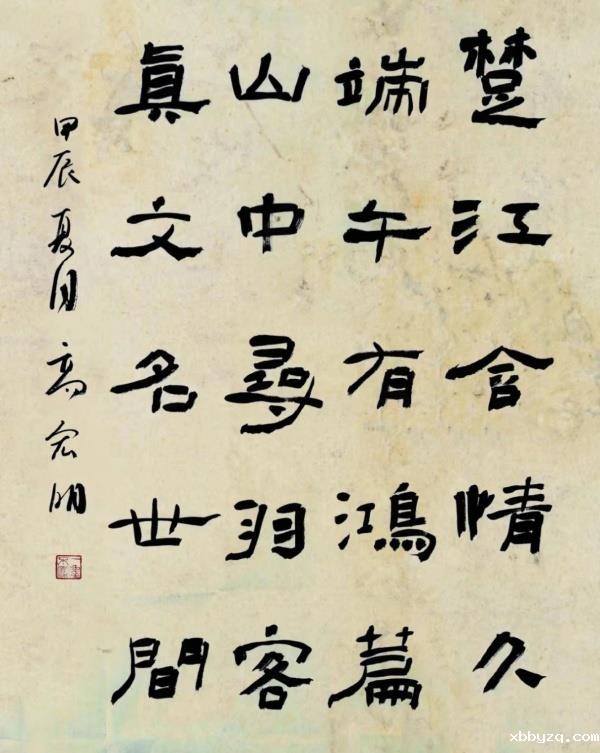 楚江含情久
端午有鴻篇
山中尋羽客
真文名世間
甲辰夏月高宏明
xbbyzq.com